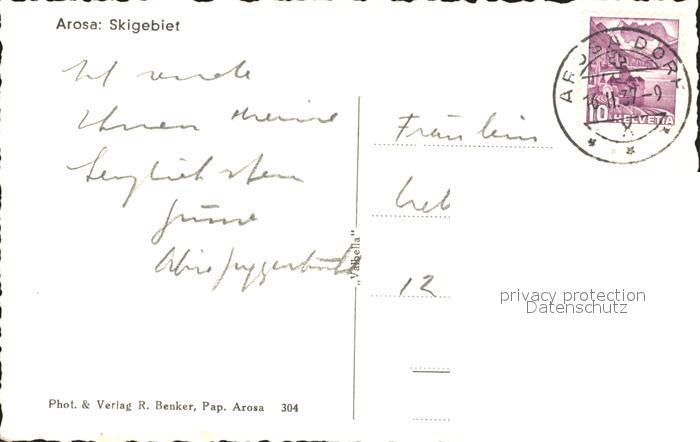 Arosa: Skigebiet
Ich sende
Ihnen meine
herzlichsten
Grüsse
Fräulein
12
„Valbella"
AROSA DORF
16.II.37-9
10 HELVETIA
privacy protection
Datenschutz
Phot. & Verlag R. Benker, Pap. Arosa 304